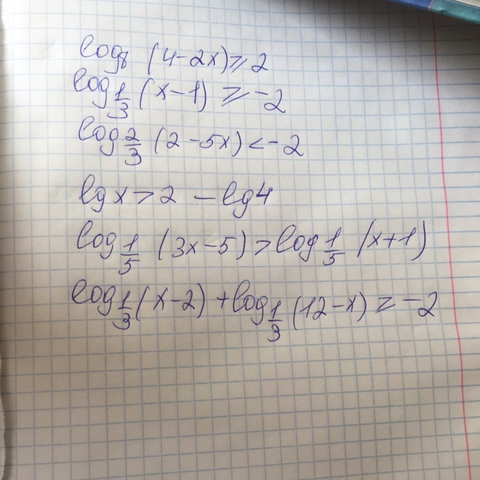 log₈ (4-2x) ≥ 2
log 1/3 (x-1) ≥ -2
log 2/3 (2-5x) < -2
lg x > 2 - lg 4
log 1/5 (3x-5) > log 1/5 (x+1)
log 1/3 (x-2) + log 1/3 (12-x) ≥ -2